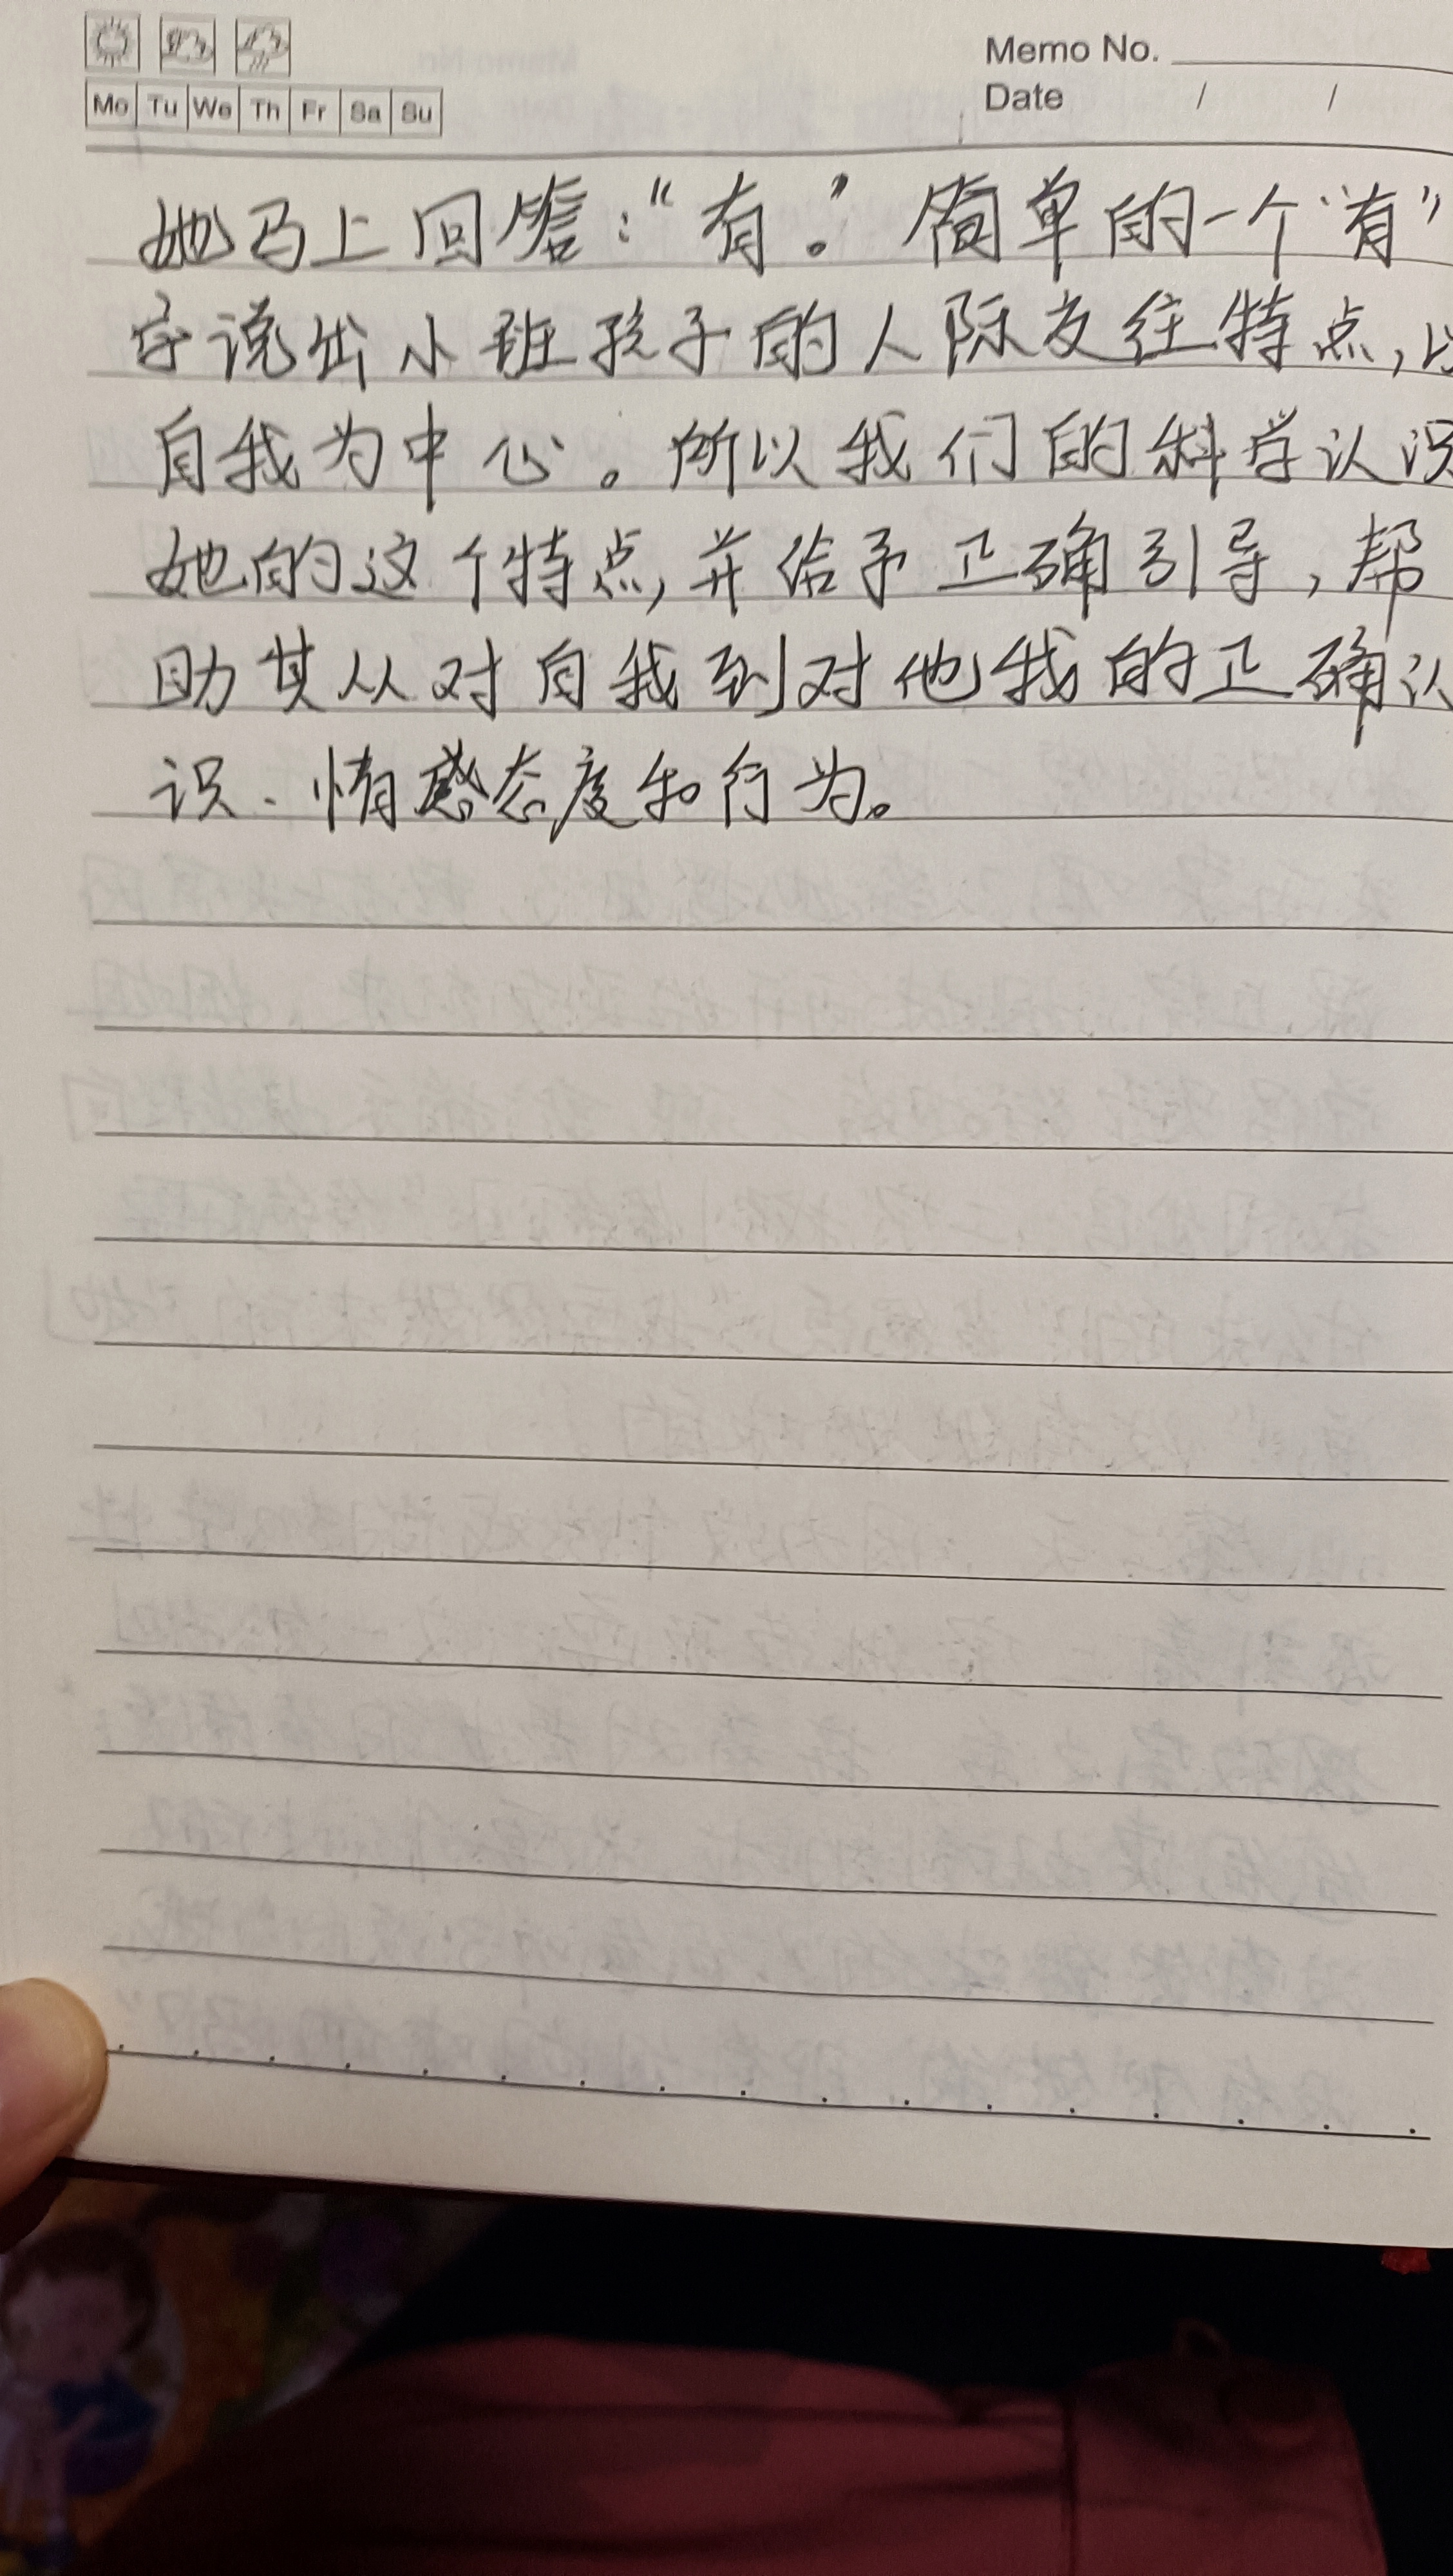 Memo No.
Date / /
Mo Tu We Th Fr Sa Su
她马上回答：“有。”简单的一个“有”
字说出小班孩子的人际交往特点，以
自我为中心。所以我们的科学认识
她的这个特点，并给予正确引导，帮
助其从对自我到对他我的正确认
识、情感态度和行为。